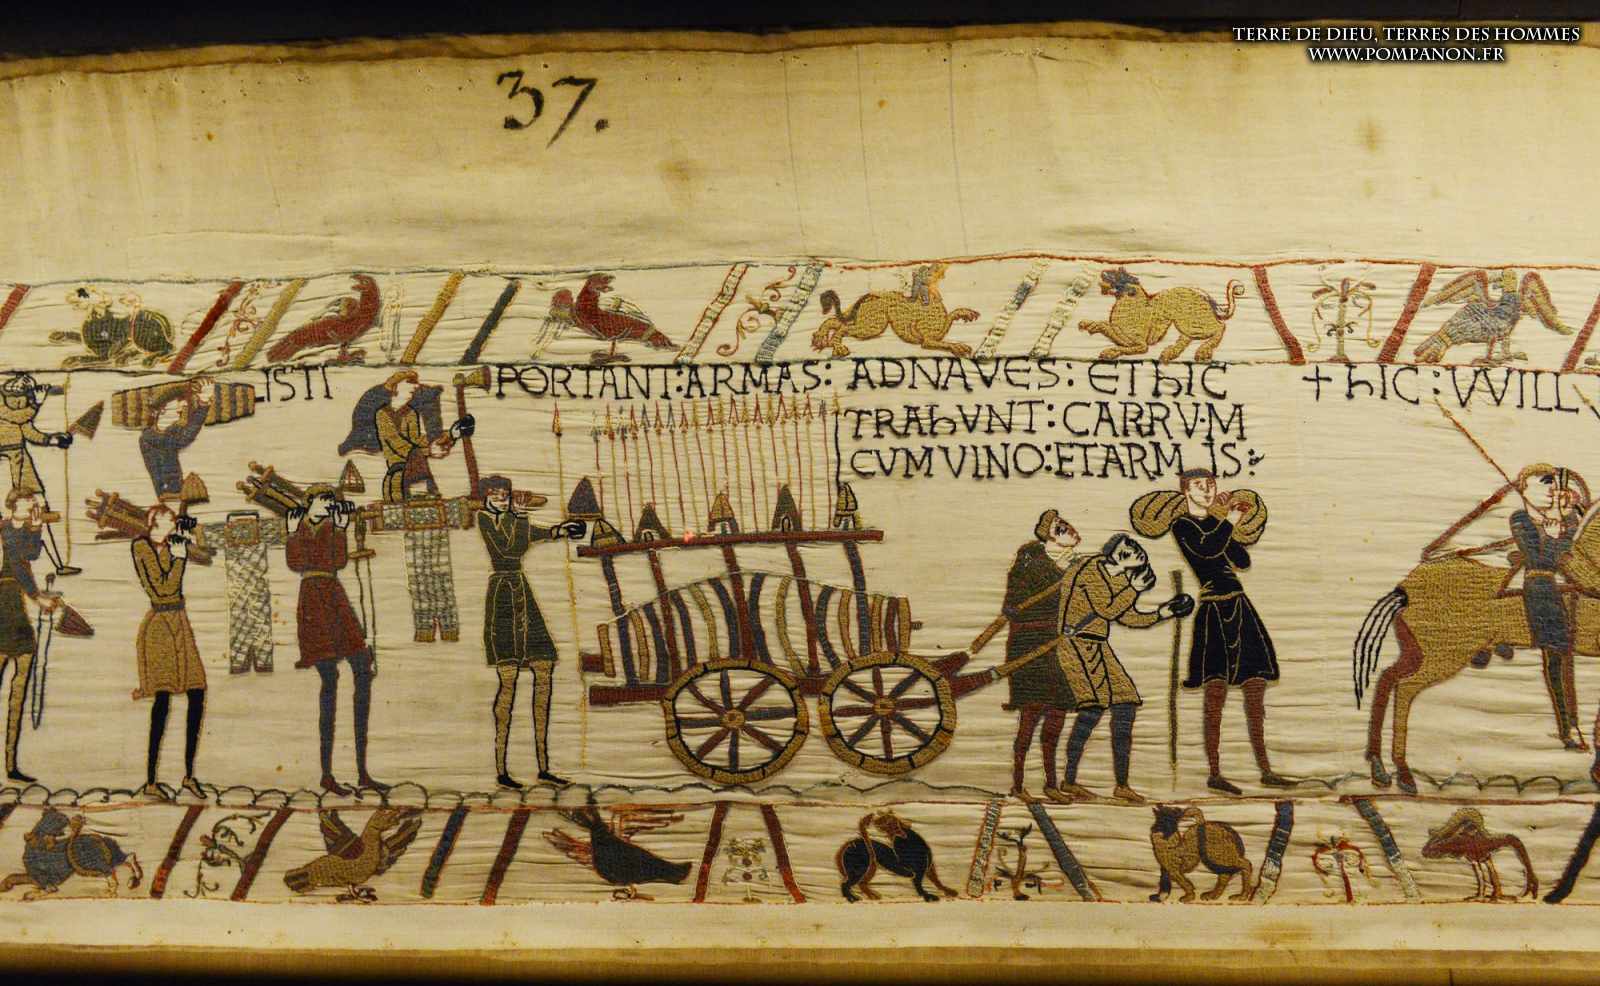 TERRE DE DIEU, TERRES DES HOMMES
WWW.POMPANON.FR
37.
ISTI PORTANT:ARMAS: ADNAVES: EThIC
TRAhVNT: CARRVM
CVMVINO:ETARMIS:
+ hIC: VVILL